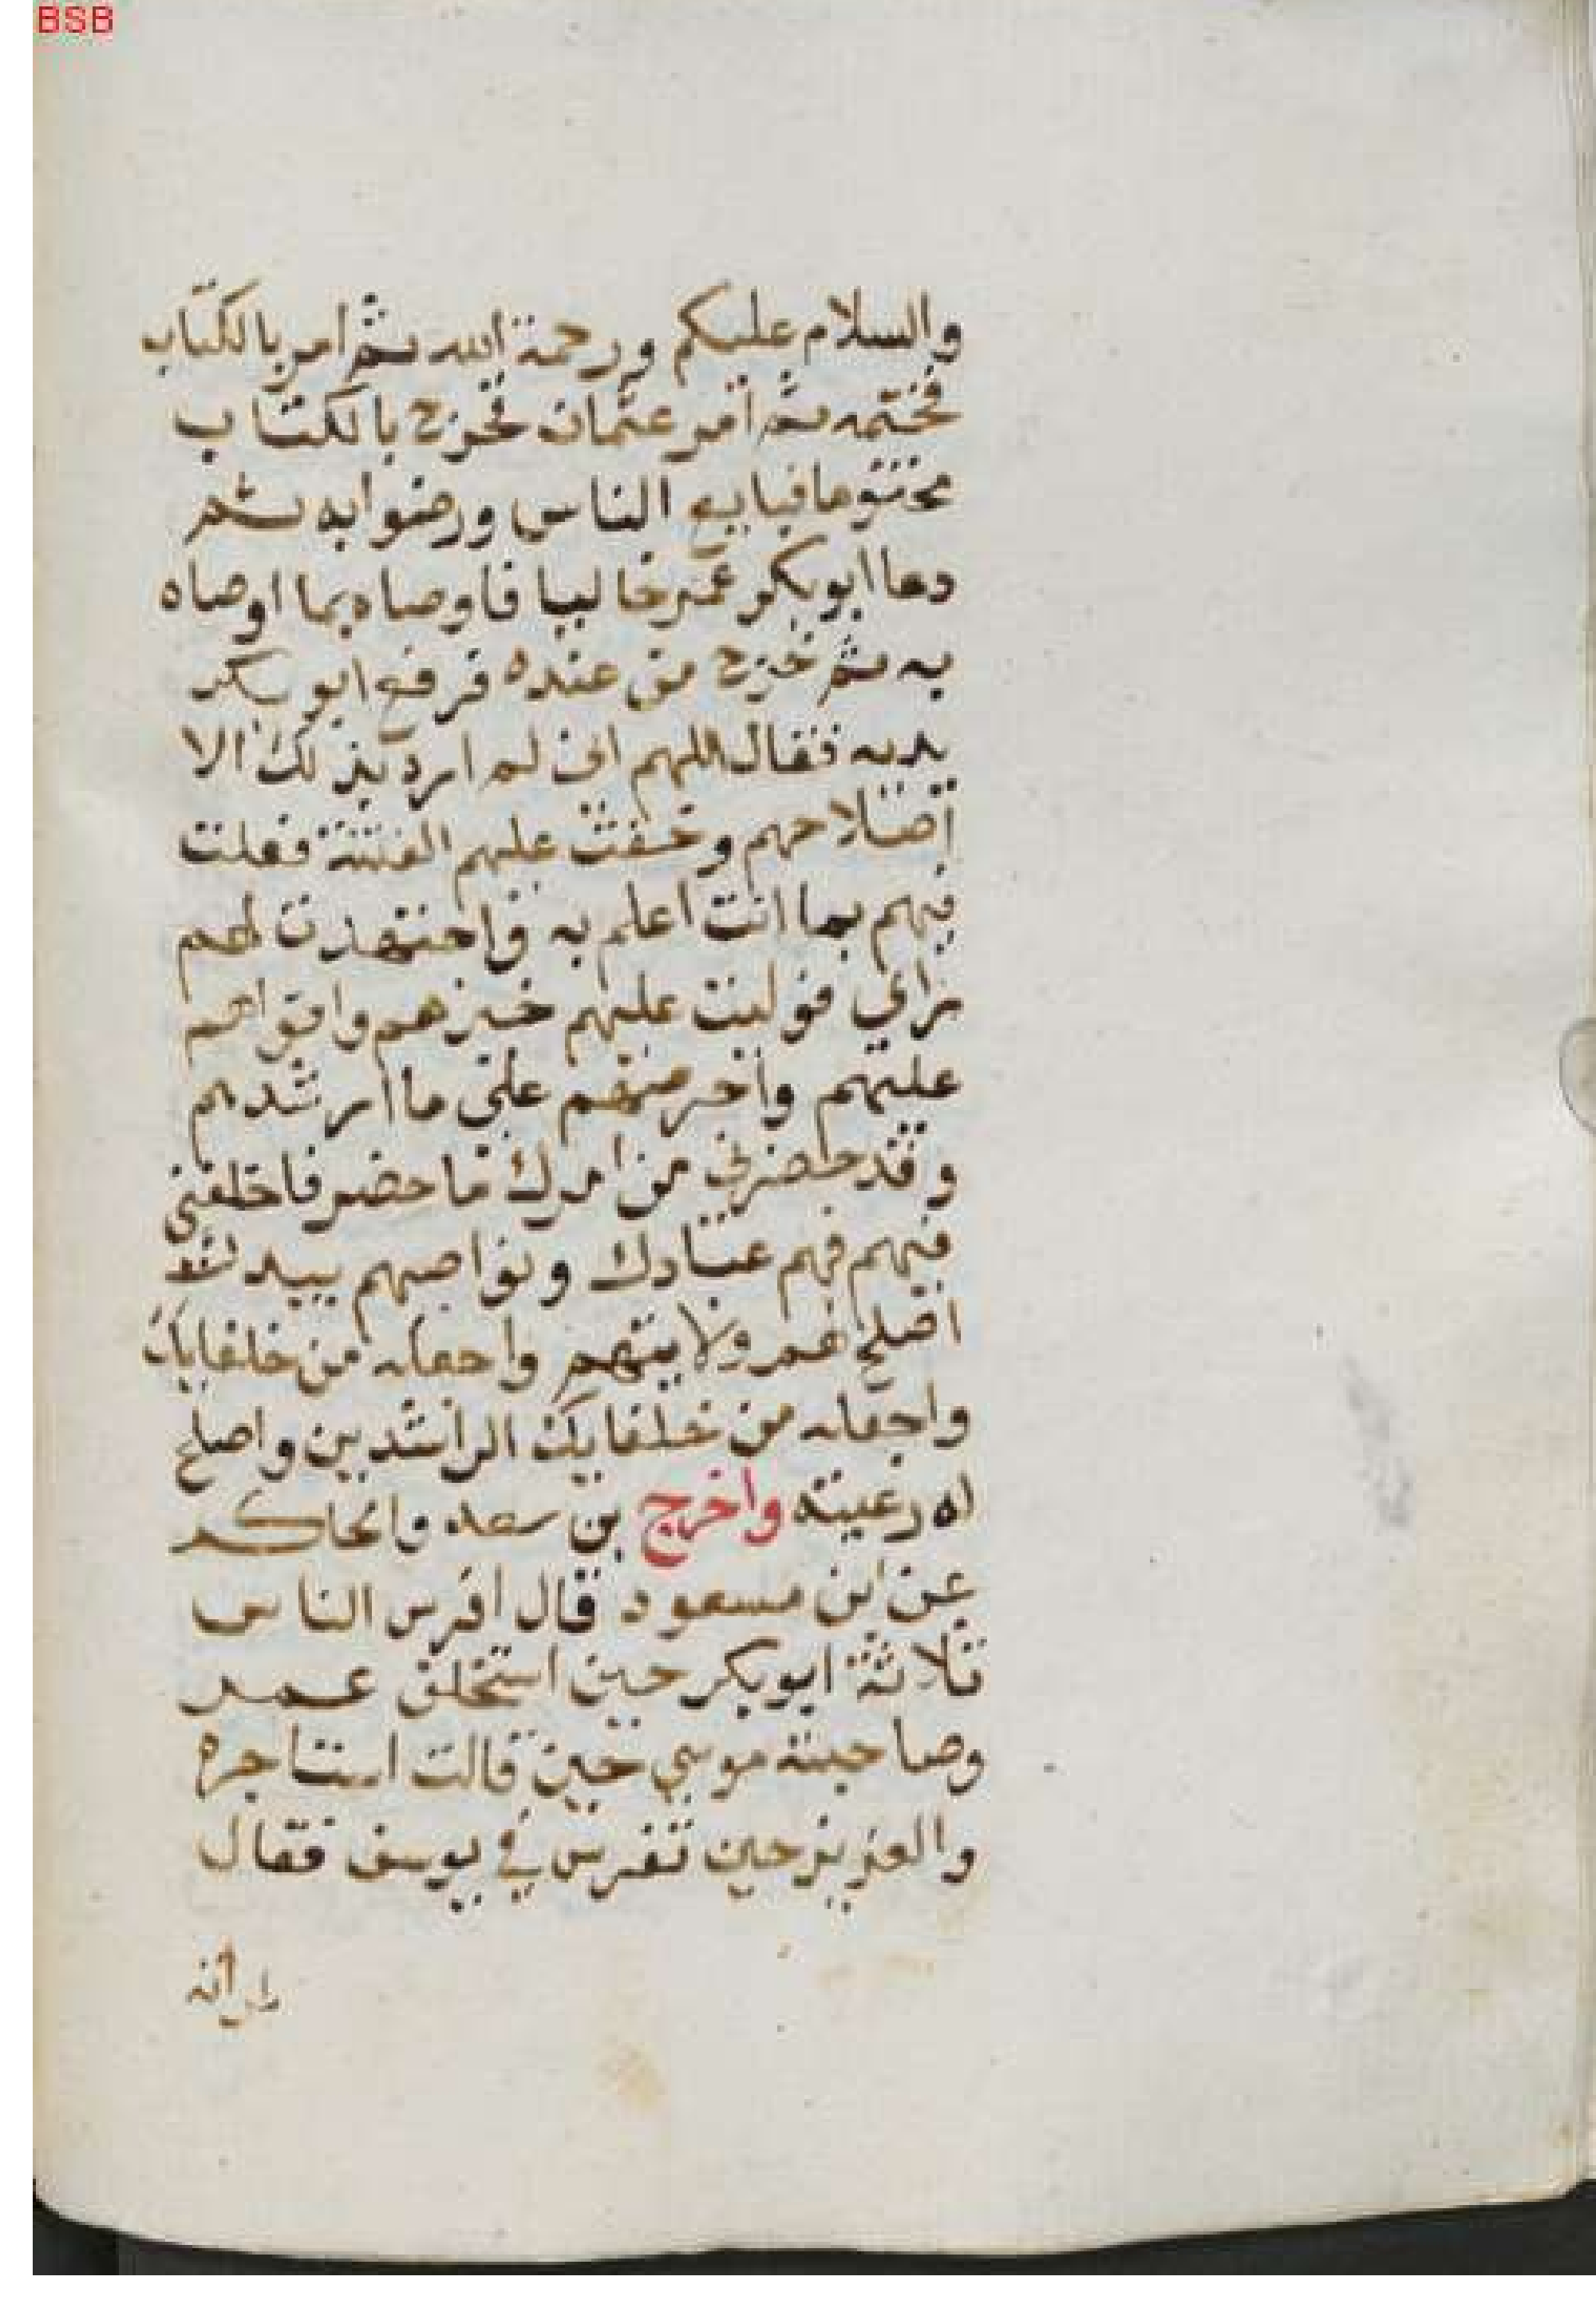 BSB
والسلام عليكم ورحمة الله ثم امر بالكتاب
فختمه ثم امر عثمان فخرج بالكتاب
مختوما فبايع الناس ورضوا به ثم
دعا ابو بكر عمر خاليا فاوصاه بما اوصاه
به ثم خرج من عنده فرفع ابو بكر
يديه فقال اللهم انى لم ارد بذلك الا
اصلاحهم وخفت عليهم الفتنة فعلت
فيهم بما انت اعلم به واجتهدت لهم
براي فوليت عليهم خيرهم واقواهم
عليهم واحرصهم علي ما ارشدهم
وقد حضرني من امرك ما حضر فاخلفني
فيهم فهم عبادك ونواصيهم بيدك
اصلح لهم ولايتهم واجعله من خلفايك
واجعله من خلفايك الراشدين واصلح
له رعيته واخرج بن سعد والحاكم
عن ابن مسعود قال افرس الناس
ثلاثة ابو بكر حين استخلف عمر
وصاحبة موسي حين قالت استاجره
والعزيز حين تفرس في يوسف فقال